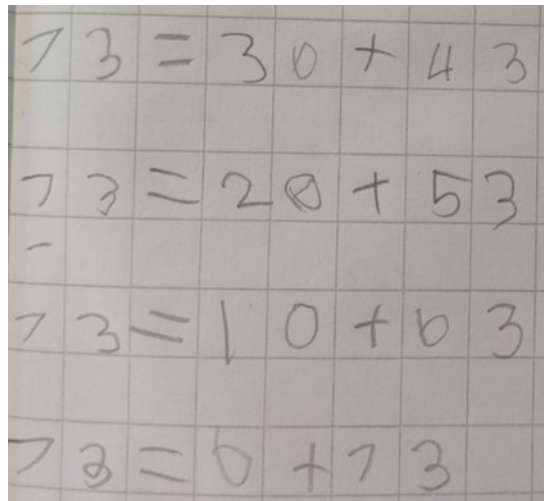 73 = 30 + 43
73 = 20 + 53
73 = 10 + 63
73 = 0 + 73